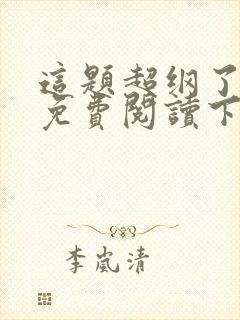 這題超纲了
免費閱讀下
李嵐清